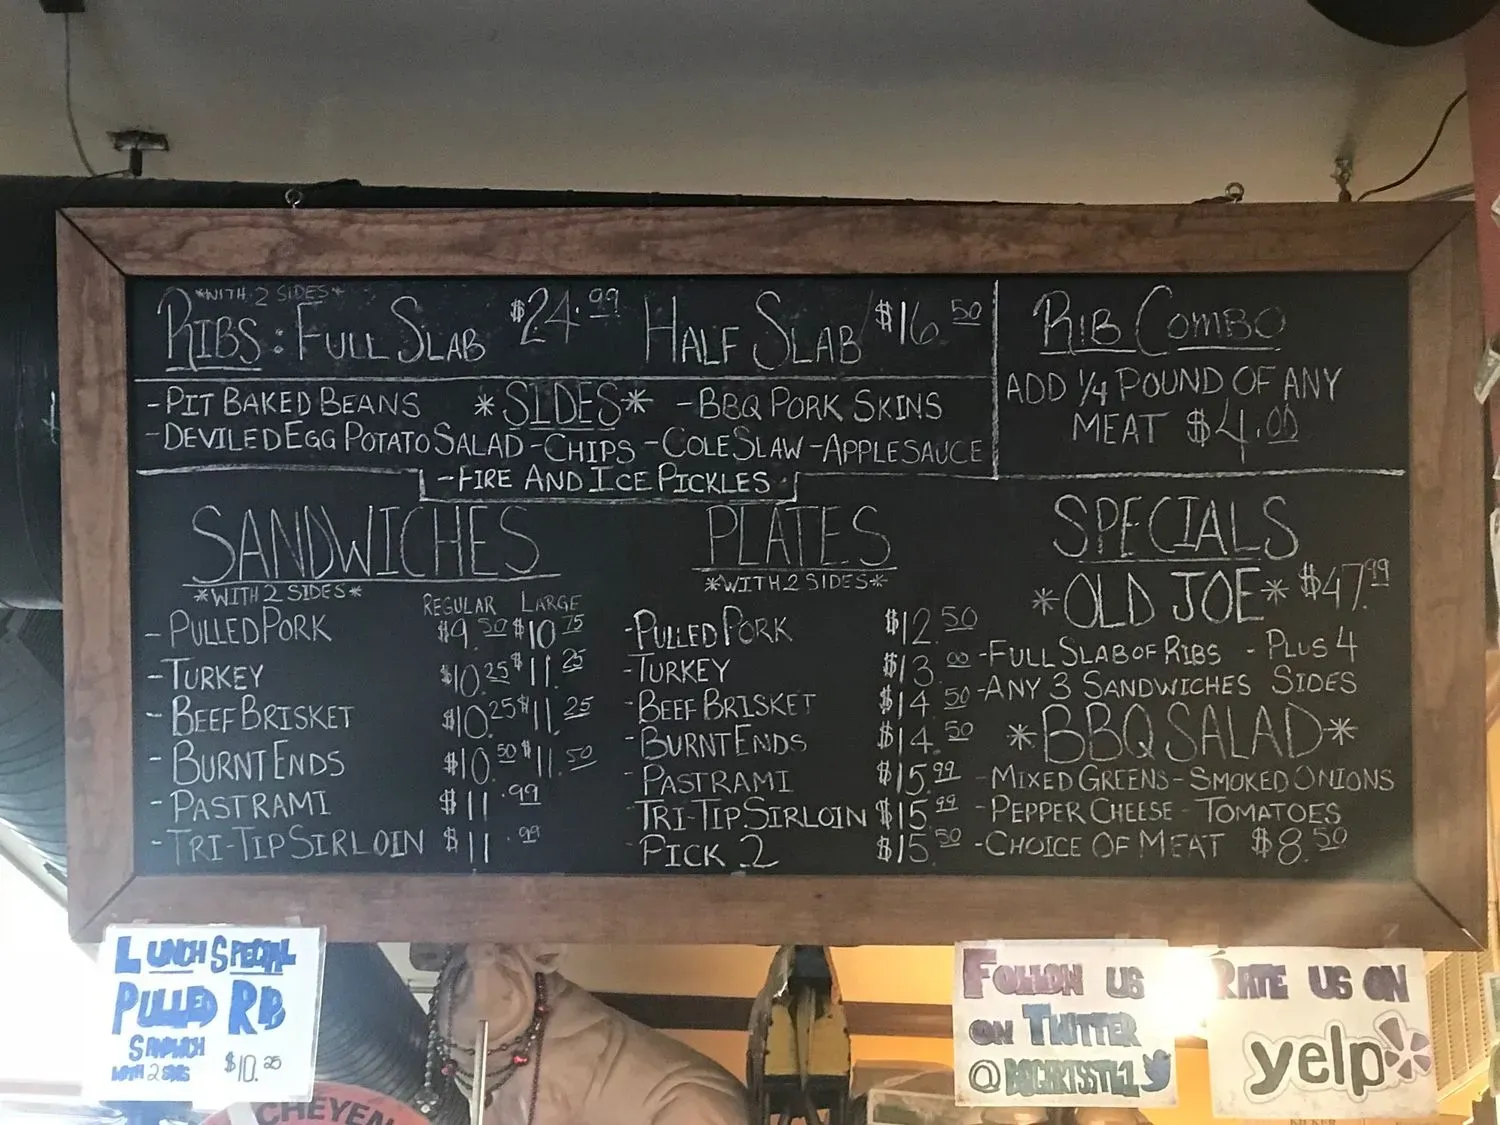 *WITH 2 SIDES*
RIBS: FULL SLAB $24.99 HALF SLAB $16.50
*SIDES*
-PIT BAKED BEANS -BBQ PORK SKINS
-DEVILED EGG POTATO SALAD -CHIPS -COLE SLAW -APPLESAUCE
-FIRE AND ICE PICKLES
RIB COMBO
ADD 1/4 POUND OF ANY
MEAT $4.00
SANDWICHES
*WITH 2 SIDES*
REGULAR LARGE
-PULLED PORK $9.50 $10.75
-TURKEY $10.25 $11.25
-BEEF BRISKET $10.25 $11.25
-BURNT ENDS $10.50 $11.50
-PASTRAMI $11.99
-TRI-TIP SIRLOIN $11.99
PLATES
*WITH 2 SIDES*
-PULLED PORK $12.50
-TURKEY $13.00
-BEEF BRISKET $14.50
-BURNT ENDS $14.50
-PASTRAMI $15.99
-TRI-TIP SIRLOIN $15.99
-PICK 2 $15.50
SPECIALS
*OLD JOE* $47.99
-FULL SLAB OF RIBS - PLUS 4
-ANY 3 SANDWICHES SIDES
*BBQ SALAD*
-MIXED GREENS -SMOKED ONIONS
-PEPPER CHEESE -TOMATOES
-CHOICE OF MEAT $8.50
LUNCH SPECIAL
PULLED RIB
SANDWICH
WITH 2 SIDES $10.25
CHEYEN
FOLLOW US
ON TWITTER
RATE US ON
yelp